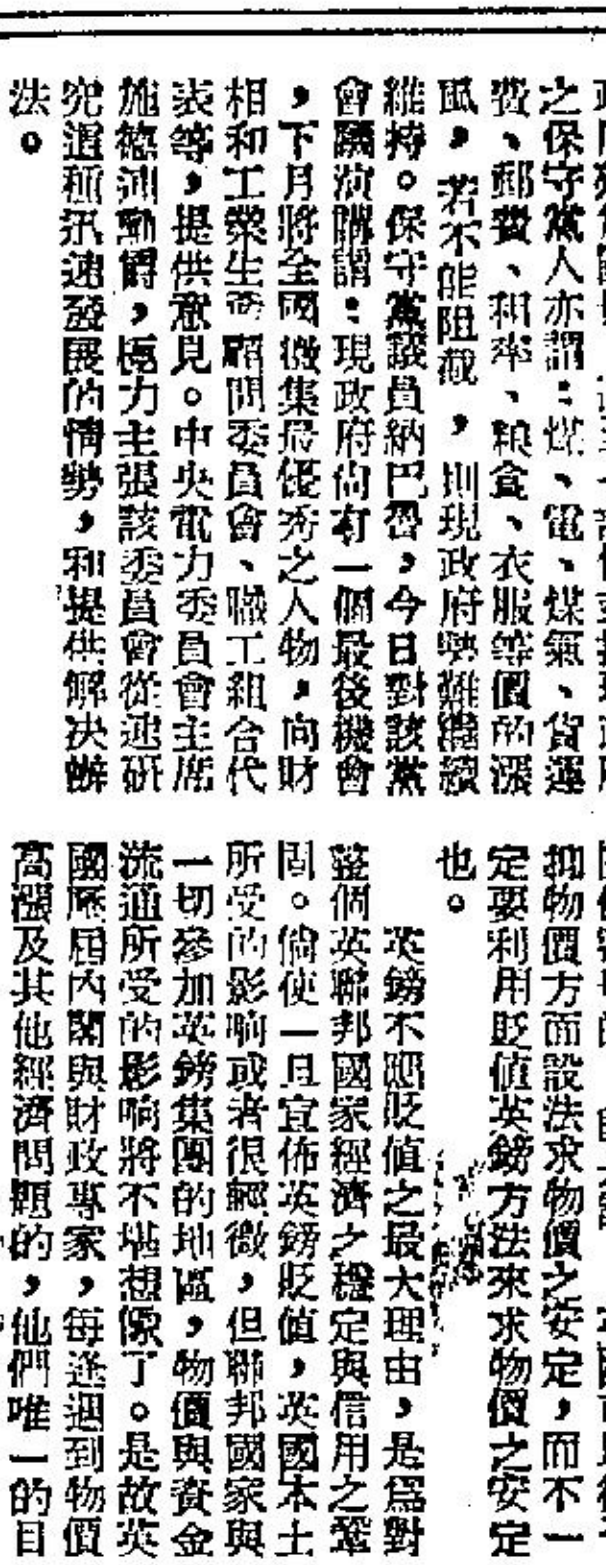 之保守黨人亦謂：煤、電、煤氣、貨運
費、郵費、租率、粮食、衣服等價的漲
風，若不能阻截，則現政府勢難繼續
維持。保守黨議員納巴魯，今日對該黨
會議演講謂：現政府尚有一個最後機會
，下月將全國徵集最優秀之人物，向財
相和工業生產顧問委員會、職工組合代
表等，提供意見。中央電力委員會主席
施德連勳爵，極力主張該委員會從速研
究這種汛速發展的情勢，和提供解决辦
法。
抑物價方面設法求物價之安定，而不一
定要利用貶值英鎊方法來求物價之安定
也。
英鎊不應貶值之最大理由，是爲對
整個英聯邦國家經濟之穩定與信用之鞏
固。倘使一旦宣佈英鎊貶值，英國本土
所受的影响或者很輕微，但聯邦國家與
一切參加英鎊集團的地區，物價與資金
流通所受的影响將不堪想像了。是故英
國歷屆內閣與財政專家，每逢遇到物價
高漲及其他經濟問題的，他們唯一的目